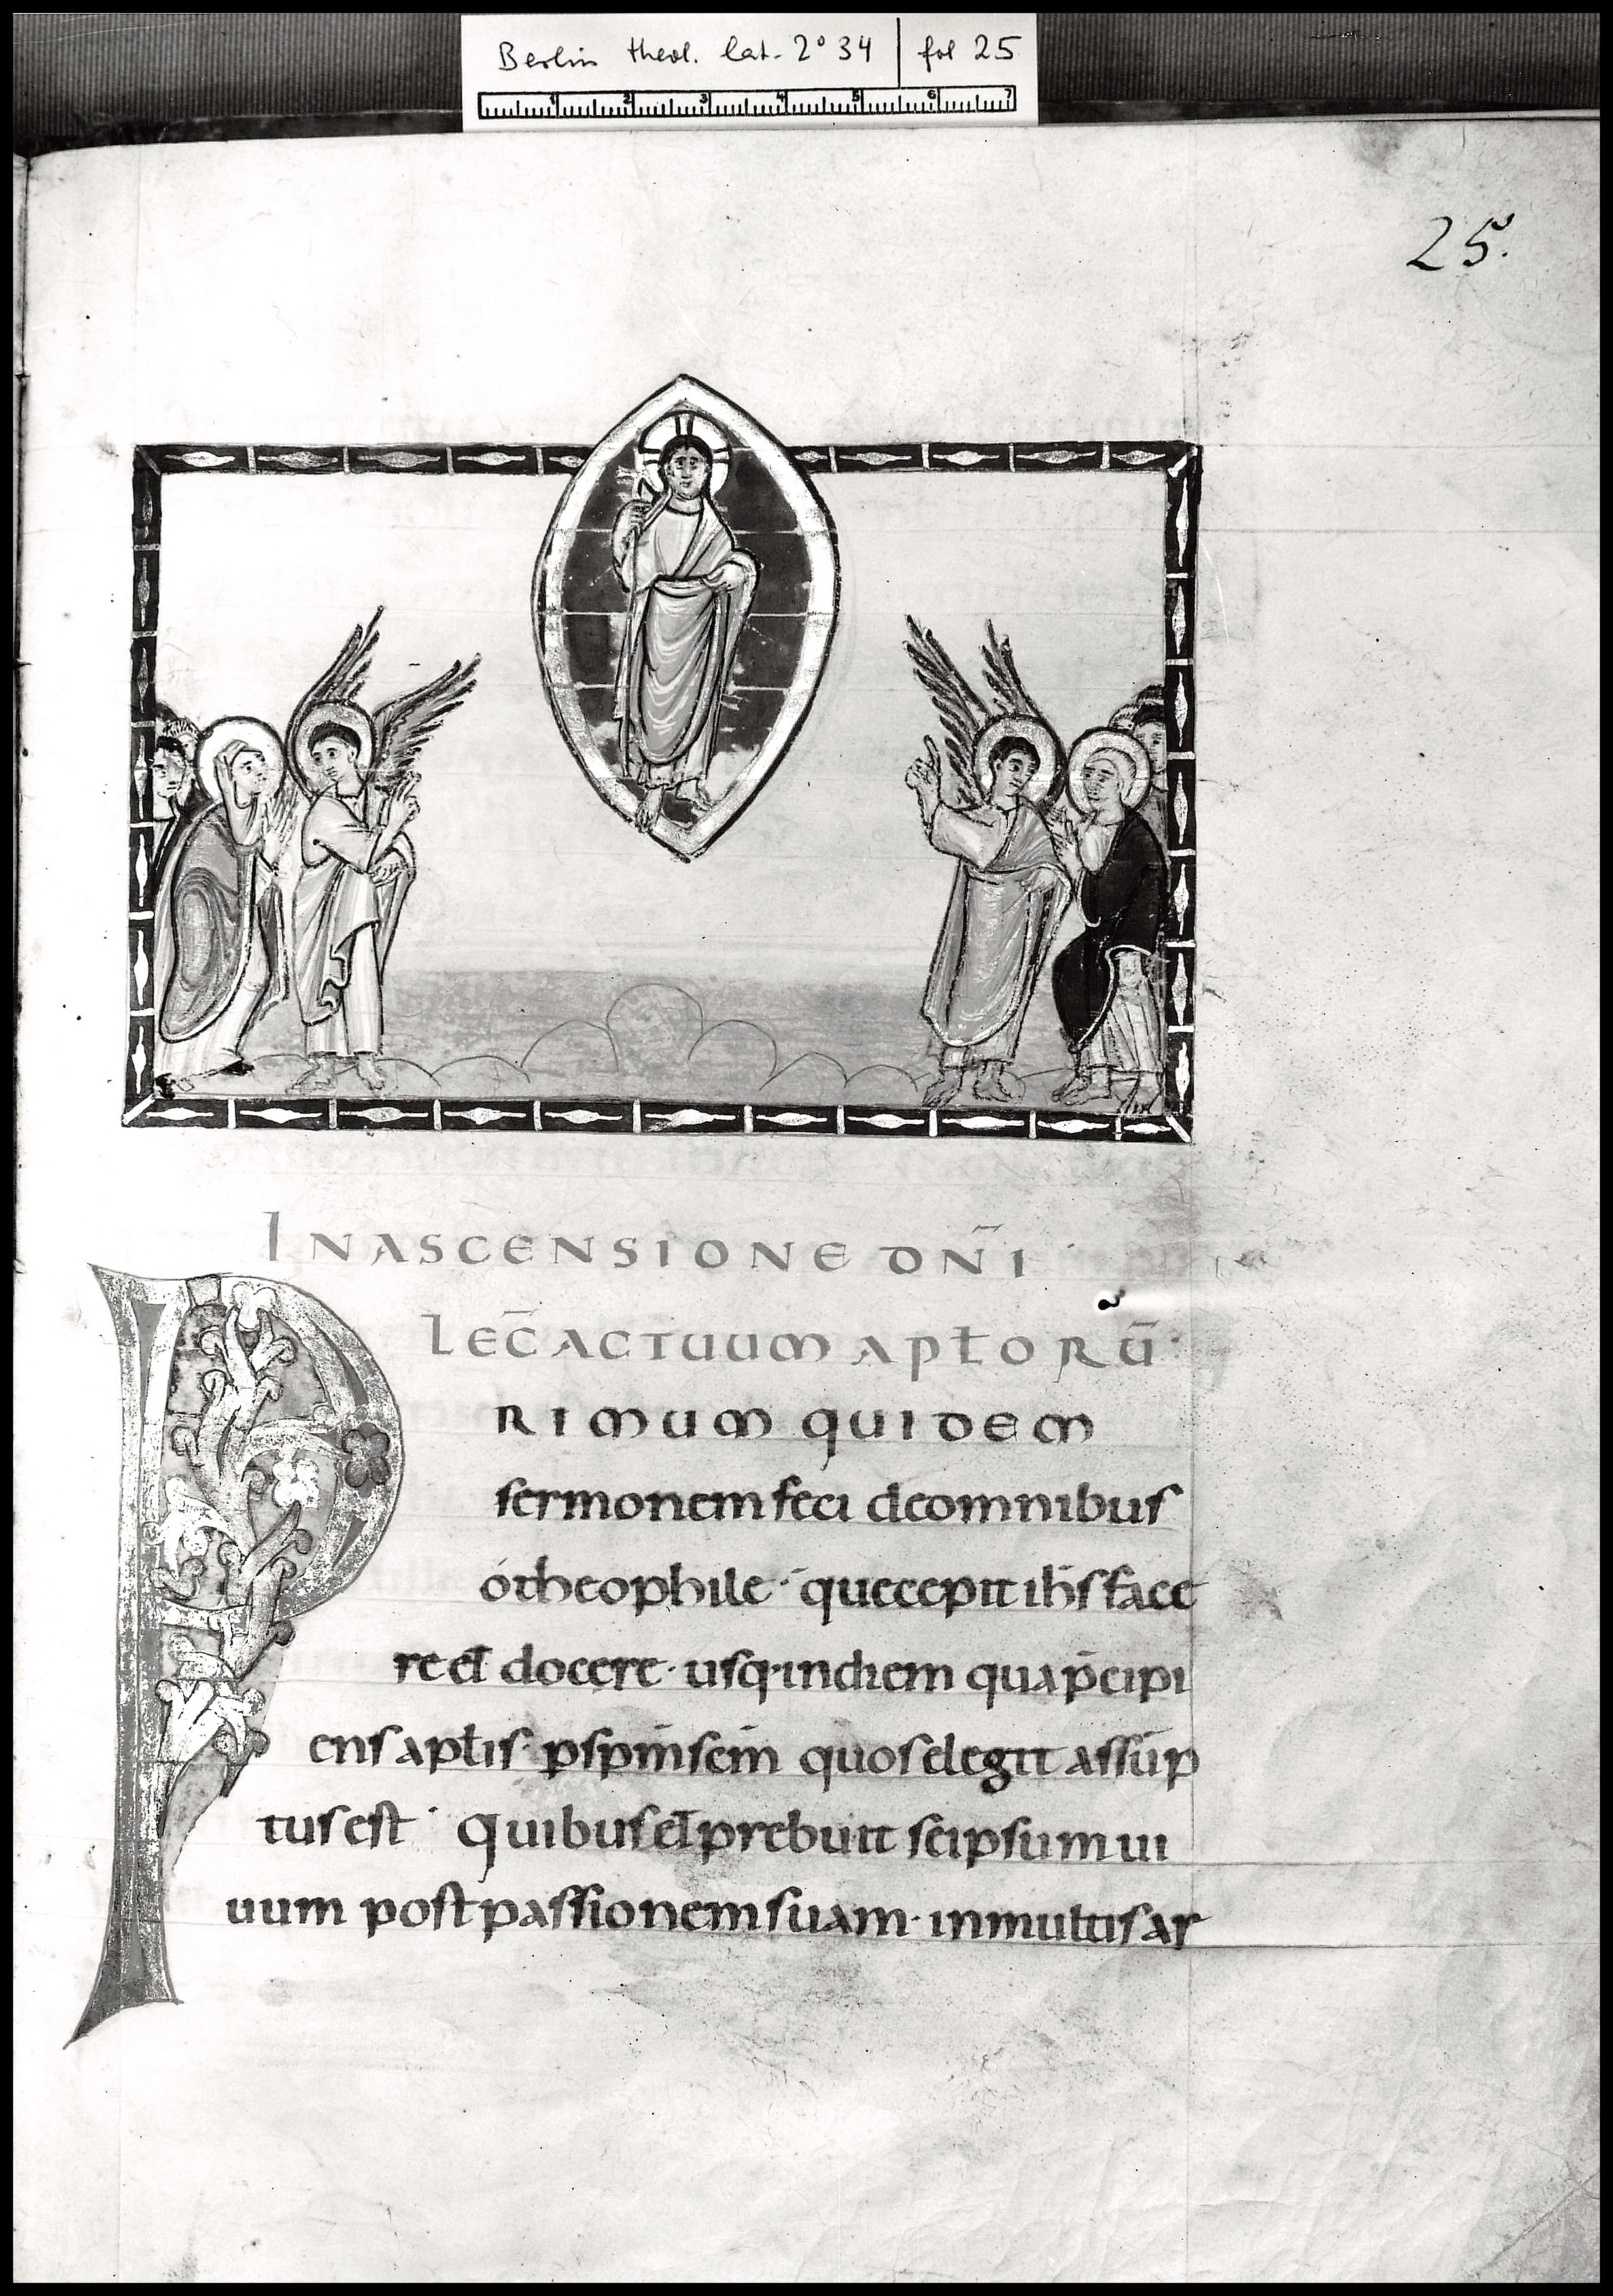 Berlin theol. lat. 2° 34 | fol 25
1 2 3 4 5 6 7
25.
IN ASCENSIONE DN̄I
LEC̄ ACTUUM APŁORŪ·
PRIMUM QUIDEM
sermonem feci de omnibus
ó theophile · que cepit ih̄s face
re et docere · usq· in diem qua p̄cipi
ens aplis · p sp̄m sc̄m quos elegit assūp
tus est · Quibus et prebuit seipsum ui
uum post passionem suam · in multis ar